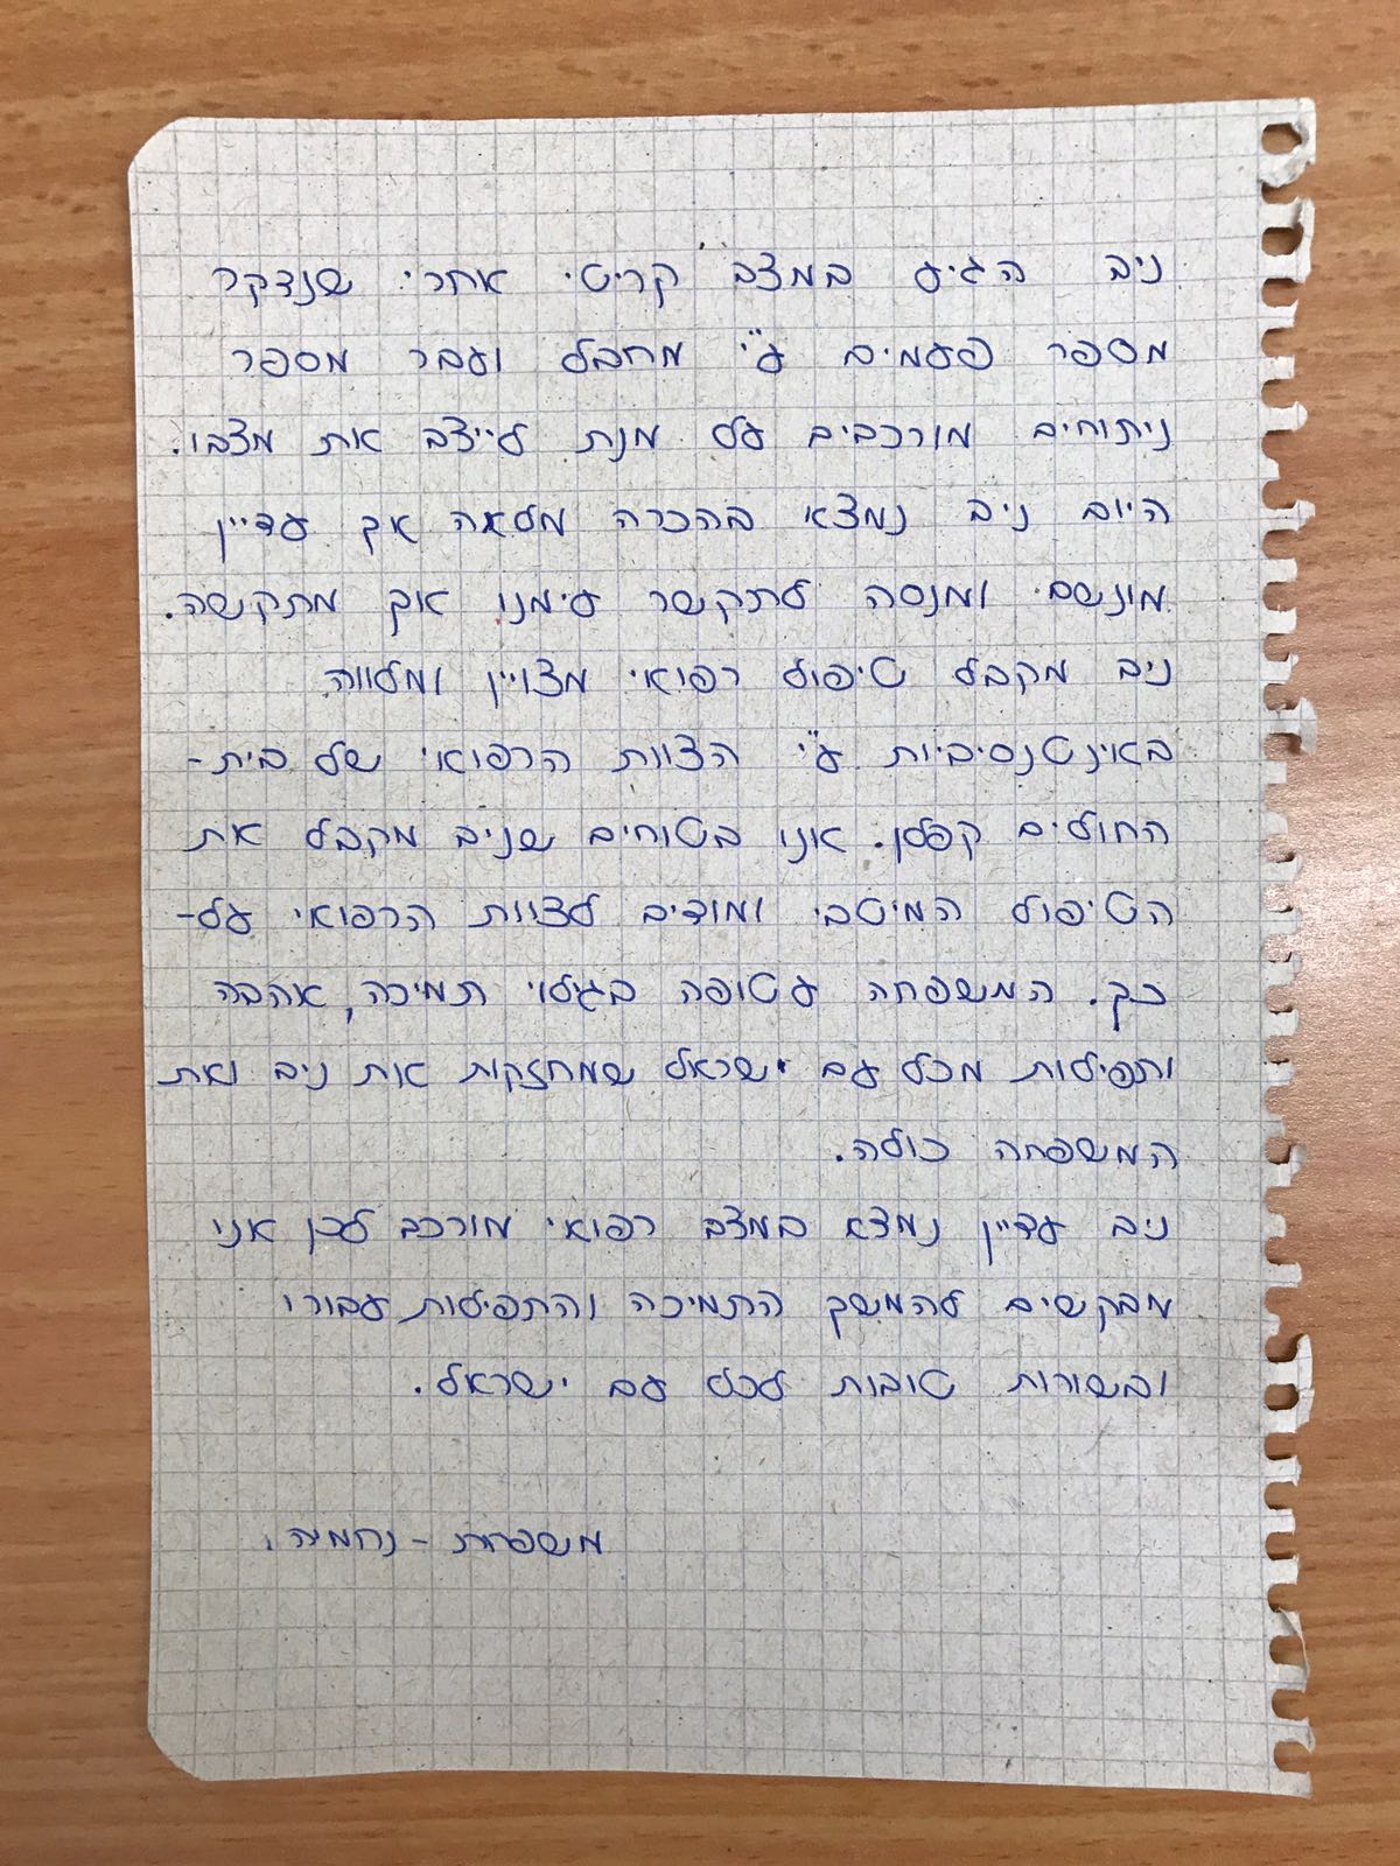 ניב הגיע במצב קריטי אחרי שנדקר
מספר פעמים ע"י מחבל ועבר מספר
ניתוחים מורכבים על מנת לייצב את מצבו.
היום ניב נמצא בהכרה מלאה אך עדיין
מונשם ומנסה לתקשר עימנו אך מתקשה.
ניב מקבל טיפול רפואי מצויין ומלווה
באינטנסיביות ע"י הצוות הרפואי של בית-
החולים קפלן. אנו בטוחים שניב מקבל את
הטיפול המיטבי ומודים לצוות הרפואי על-
כך. המשפחה עטופה בגילוי תמיכה, אהבה
ותפילות מכל עם ישראל שמחזקות את ניב ואת
המשפחה כולה.
ניב עדיין נמצא במצב רפואי מורכב לכן אני
מבקשים להמשך התמיכה והתפילות עבורו
ובשורות טובות לכל עם ישראל.
משפחת - נחמיה.